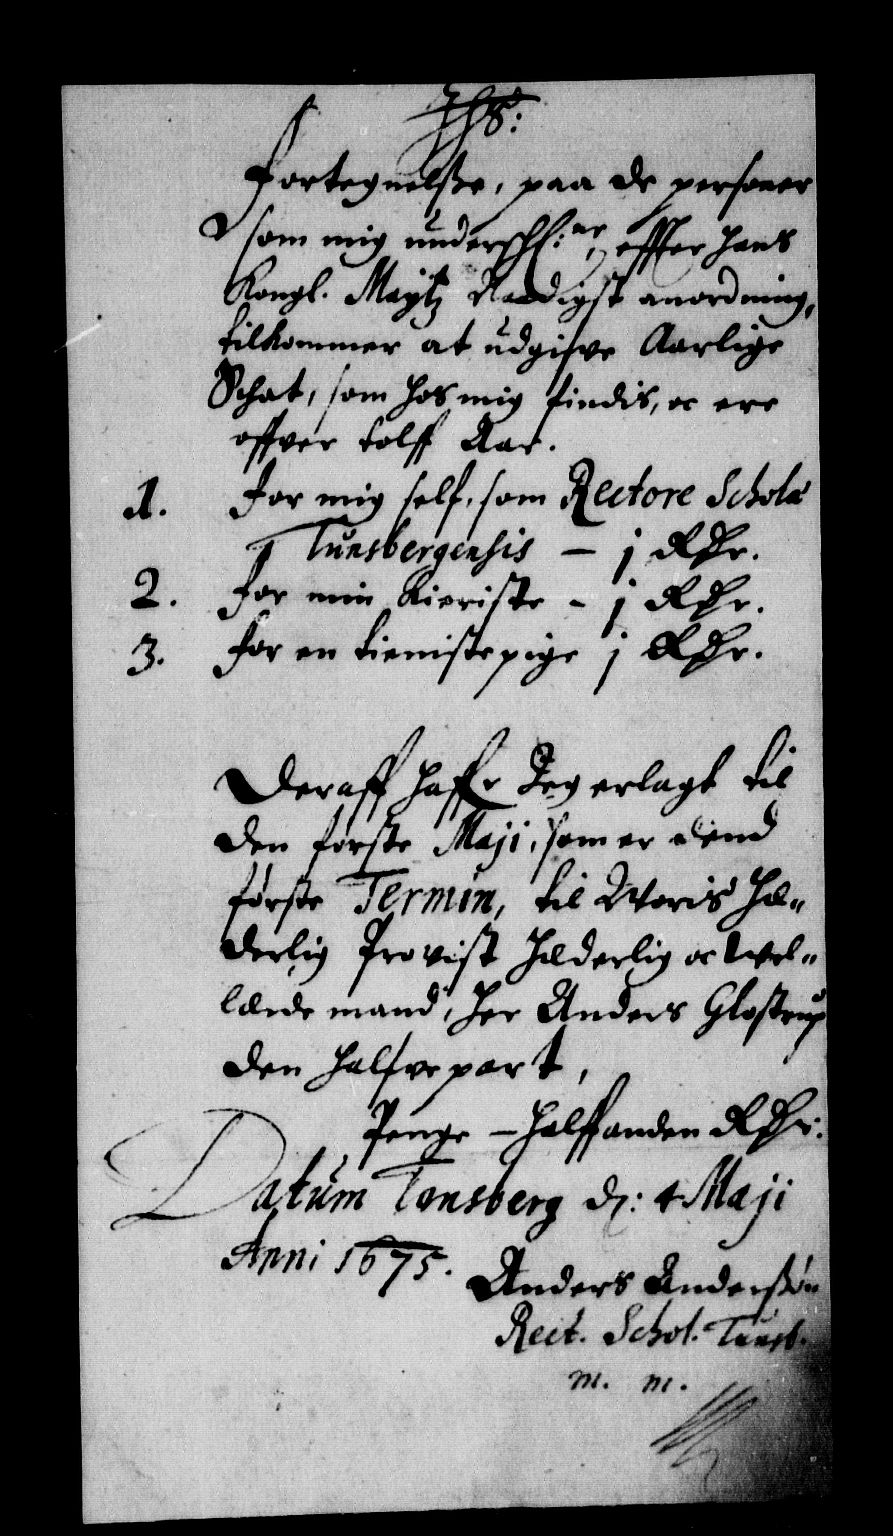 Jhs:
Fortegnelsse, paa de personer
som mig underschr: efter Hans
Kongl. Maytz Naadigst anordning,
tilkommer at udgifve Aarlige
Schat, som hos mig findis, oc ere
offver tolff Aar.
1. For mig self, som Rectore Scholæ
Tunsbergensis — j Rdr.
2. For min Kieriste - j Rdr.
3. For en tienistepige j Rdr.
Deraff haffr Jeg erlagt til
den første Maji, som er dend
første Termin, til Woris Hæ„
derlig Provist Hæderlig oc wel„
lærde mand, Her Anders Glostrup
den halfve part,
Penge — Halffanden Rdr:
Datum Tønsberg d: 4 Maji
Anni 1675.
Anders Anderssøn
Rect. Schol. Tunsb.
m. m.